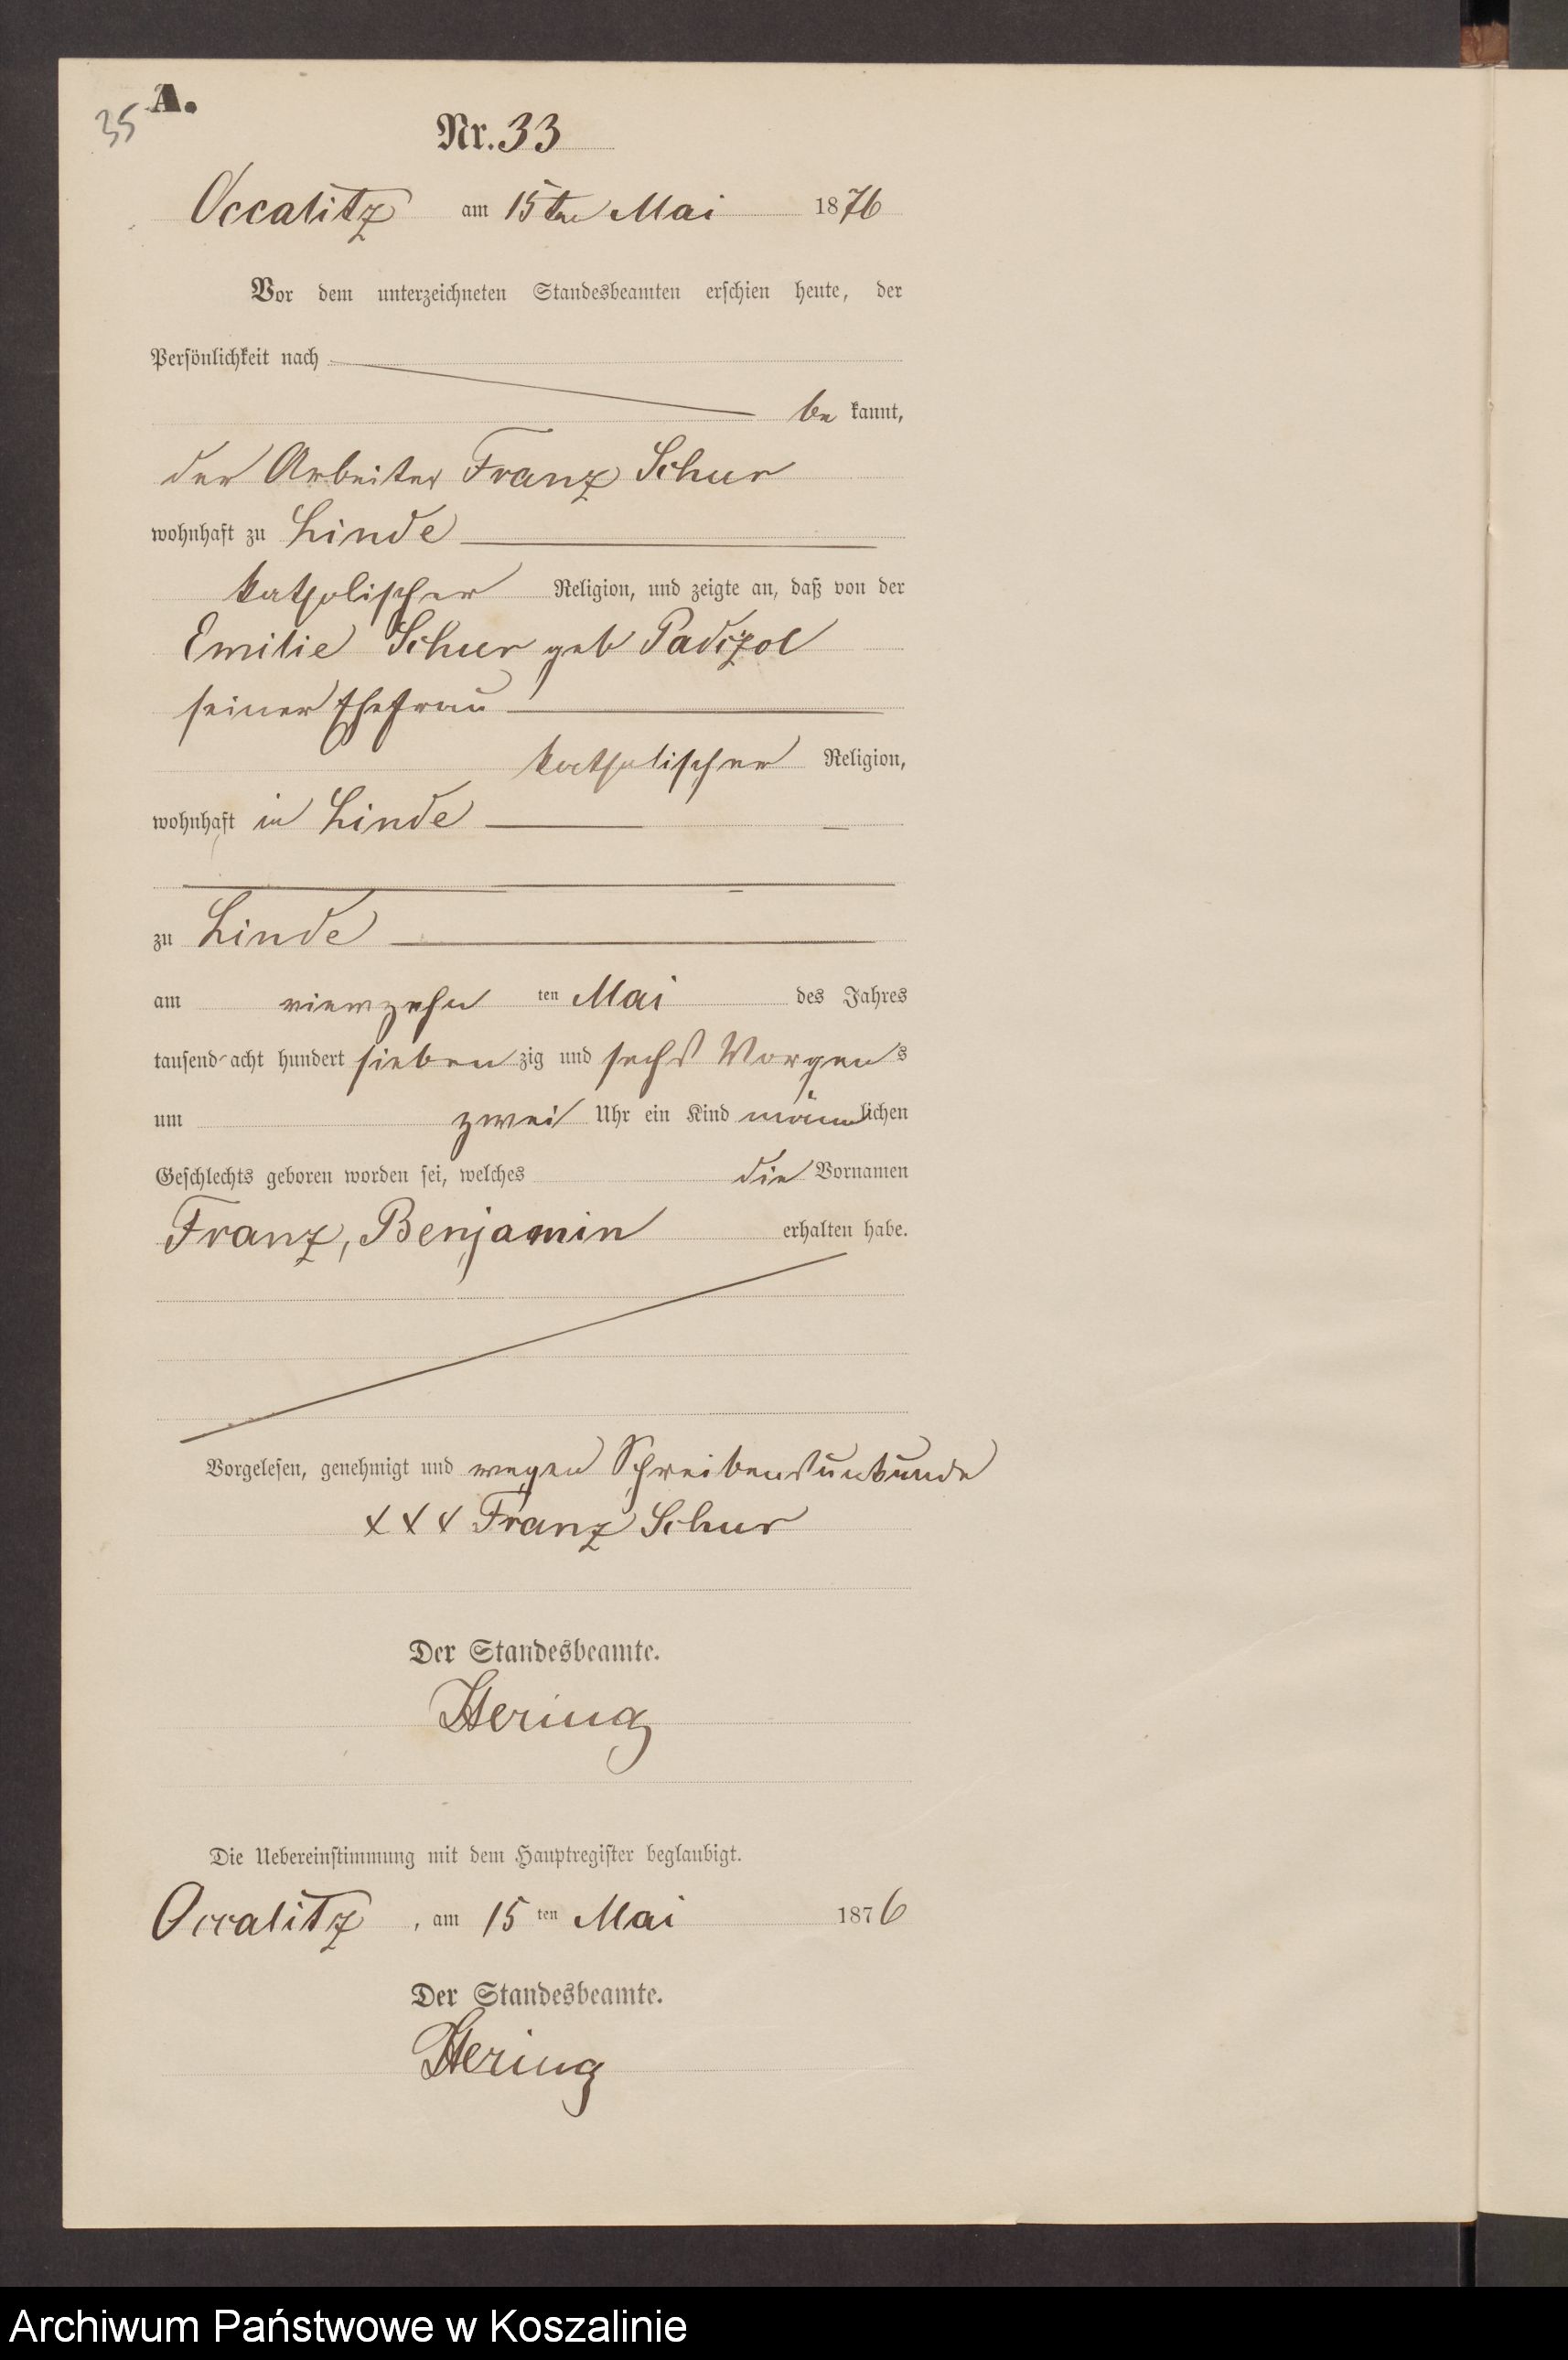 35
A.
Nr. 33
Occalitz am 15ten Mai 1876
Vor dem unterzeichneten Standesbeamten erschien heute, der
Persönlichkeit nach
be kannt,
der Arbeiter Franz Schur
wohnhaft zu Linde
katholischer Religion, und zeigte an, daß von der
Emilie Schur geb
seiner Ehefrau
katholischer Religion,
wohnhaft in Linde
zu Linde
am vierzehn ten Mai des Jahres
tausend acht hundert sieben zig und sechs Morgens
um zwei Uhr ein Kind männlichen
Geschlechts geboren worden sei, welches die Vornamen
Franz, Benjamin erhalten habe.
Vorgelesen, genehmigt und wegen Schreibensunkunde
XXX Franz Schur
Der Standesbeamte.
Hering
Die Uebereinstimmung mit dem Hauptregister beglaubigt.
Occalitz, am 15 ten Mai 1876
Der Standesbeamte.
Hering
Archiwum Państwowe w Koszalinie